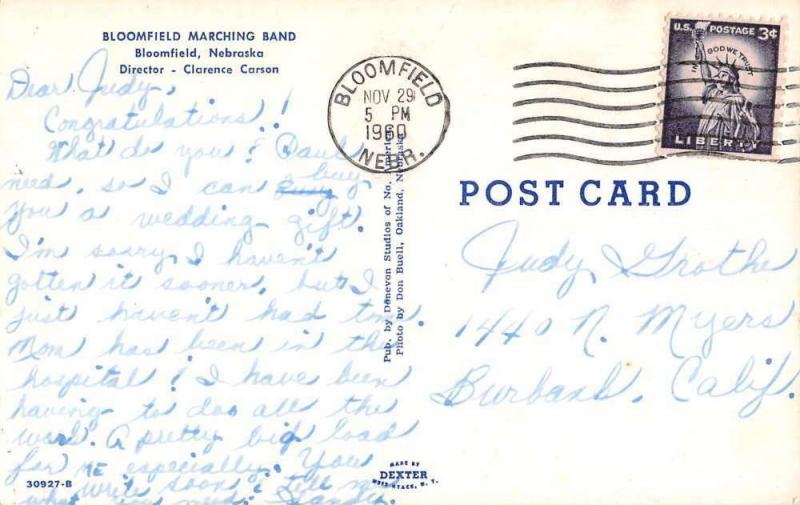 BLOOMFIELD MARCHING BAND
Bloomfield, Nebraska
Director - Clarence Carson
Dear Judy,
Congratulations!
What do you & Paul
need, so I can buy
you a wedding gift.
I'm sorry I haven't
gotten it sooner, but I
just haven't had time
Mom has been in the
hospital & I have been
having to do all the
work. A pretty big load
for ME especially. You
write soon & tell me
what you need.
30927-B
BLOOMFIELD
NOV 29
5 PM
1960
NEBR.
Pub. by Donevon Studios of No. America
Photo by Don Buell, Oakland, Nebraska
MADE BY
DEXTER
WEST NYACK, N. Y.
U.S. POSTAGE 3¢
IN GOD WE TRUST
LIBERTY
POST CARD
Judy Grothe
1440 N. Myers
Burbank, Calif.